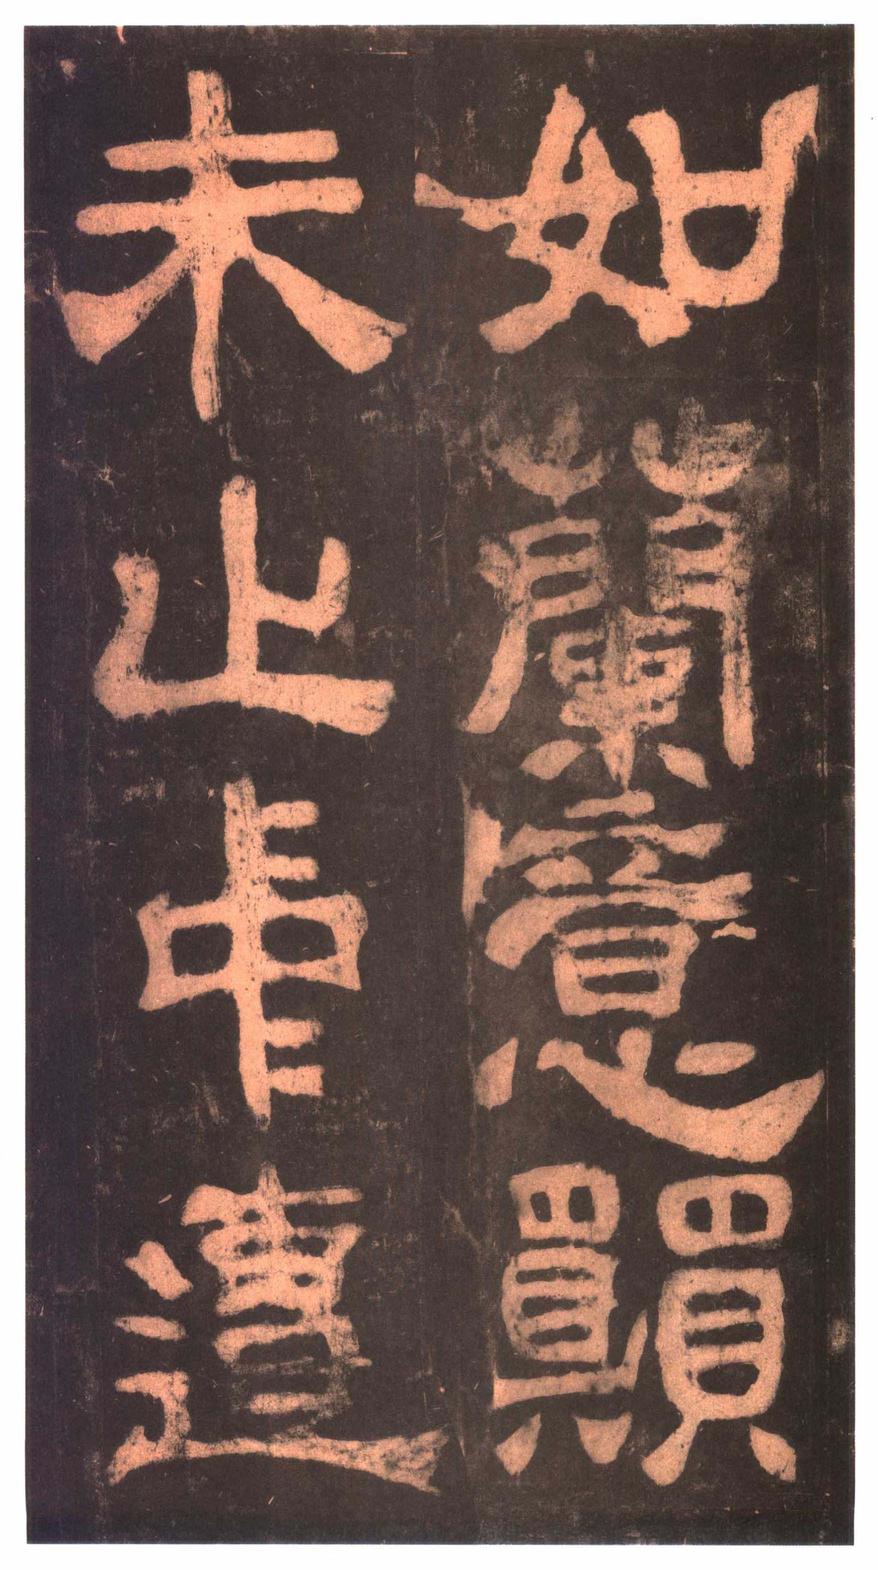 如蘭意願
未止中遭